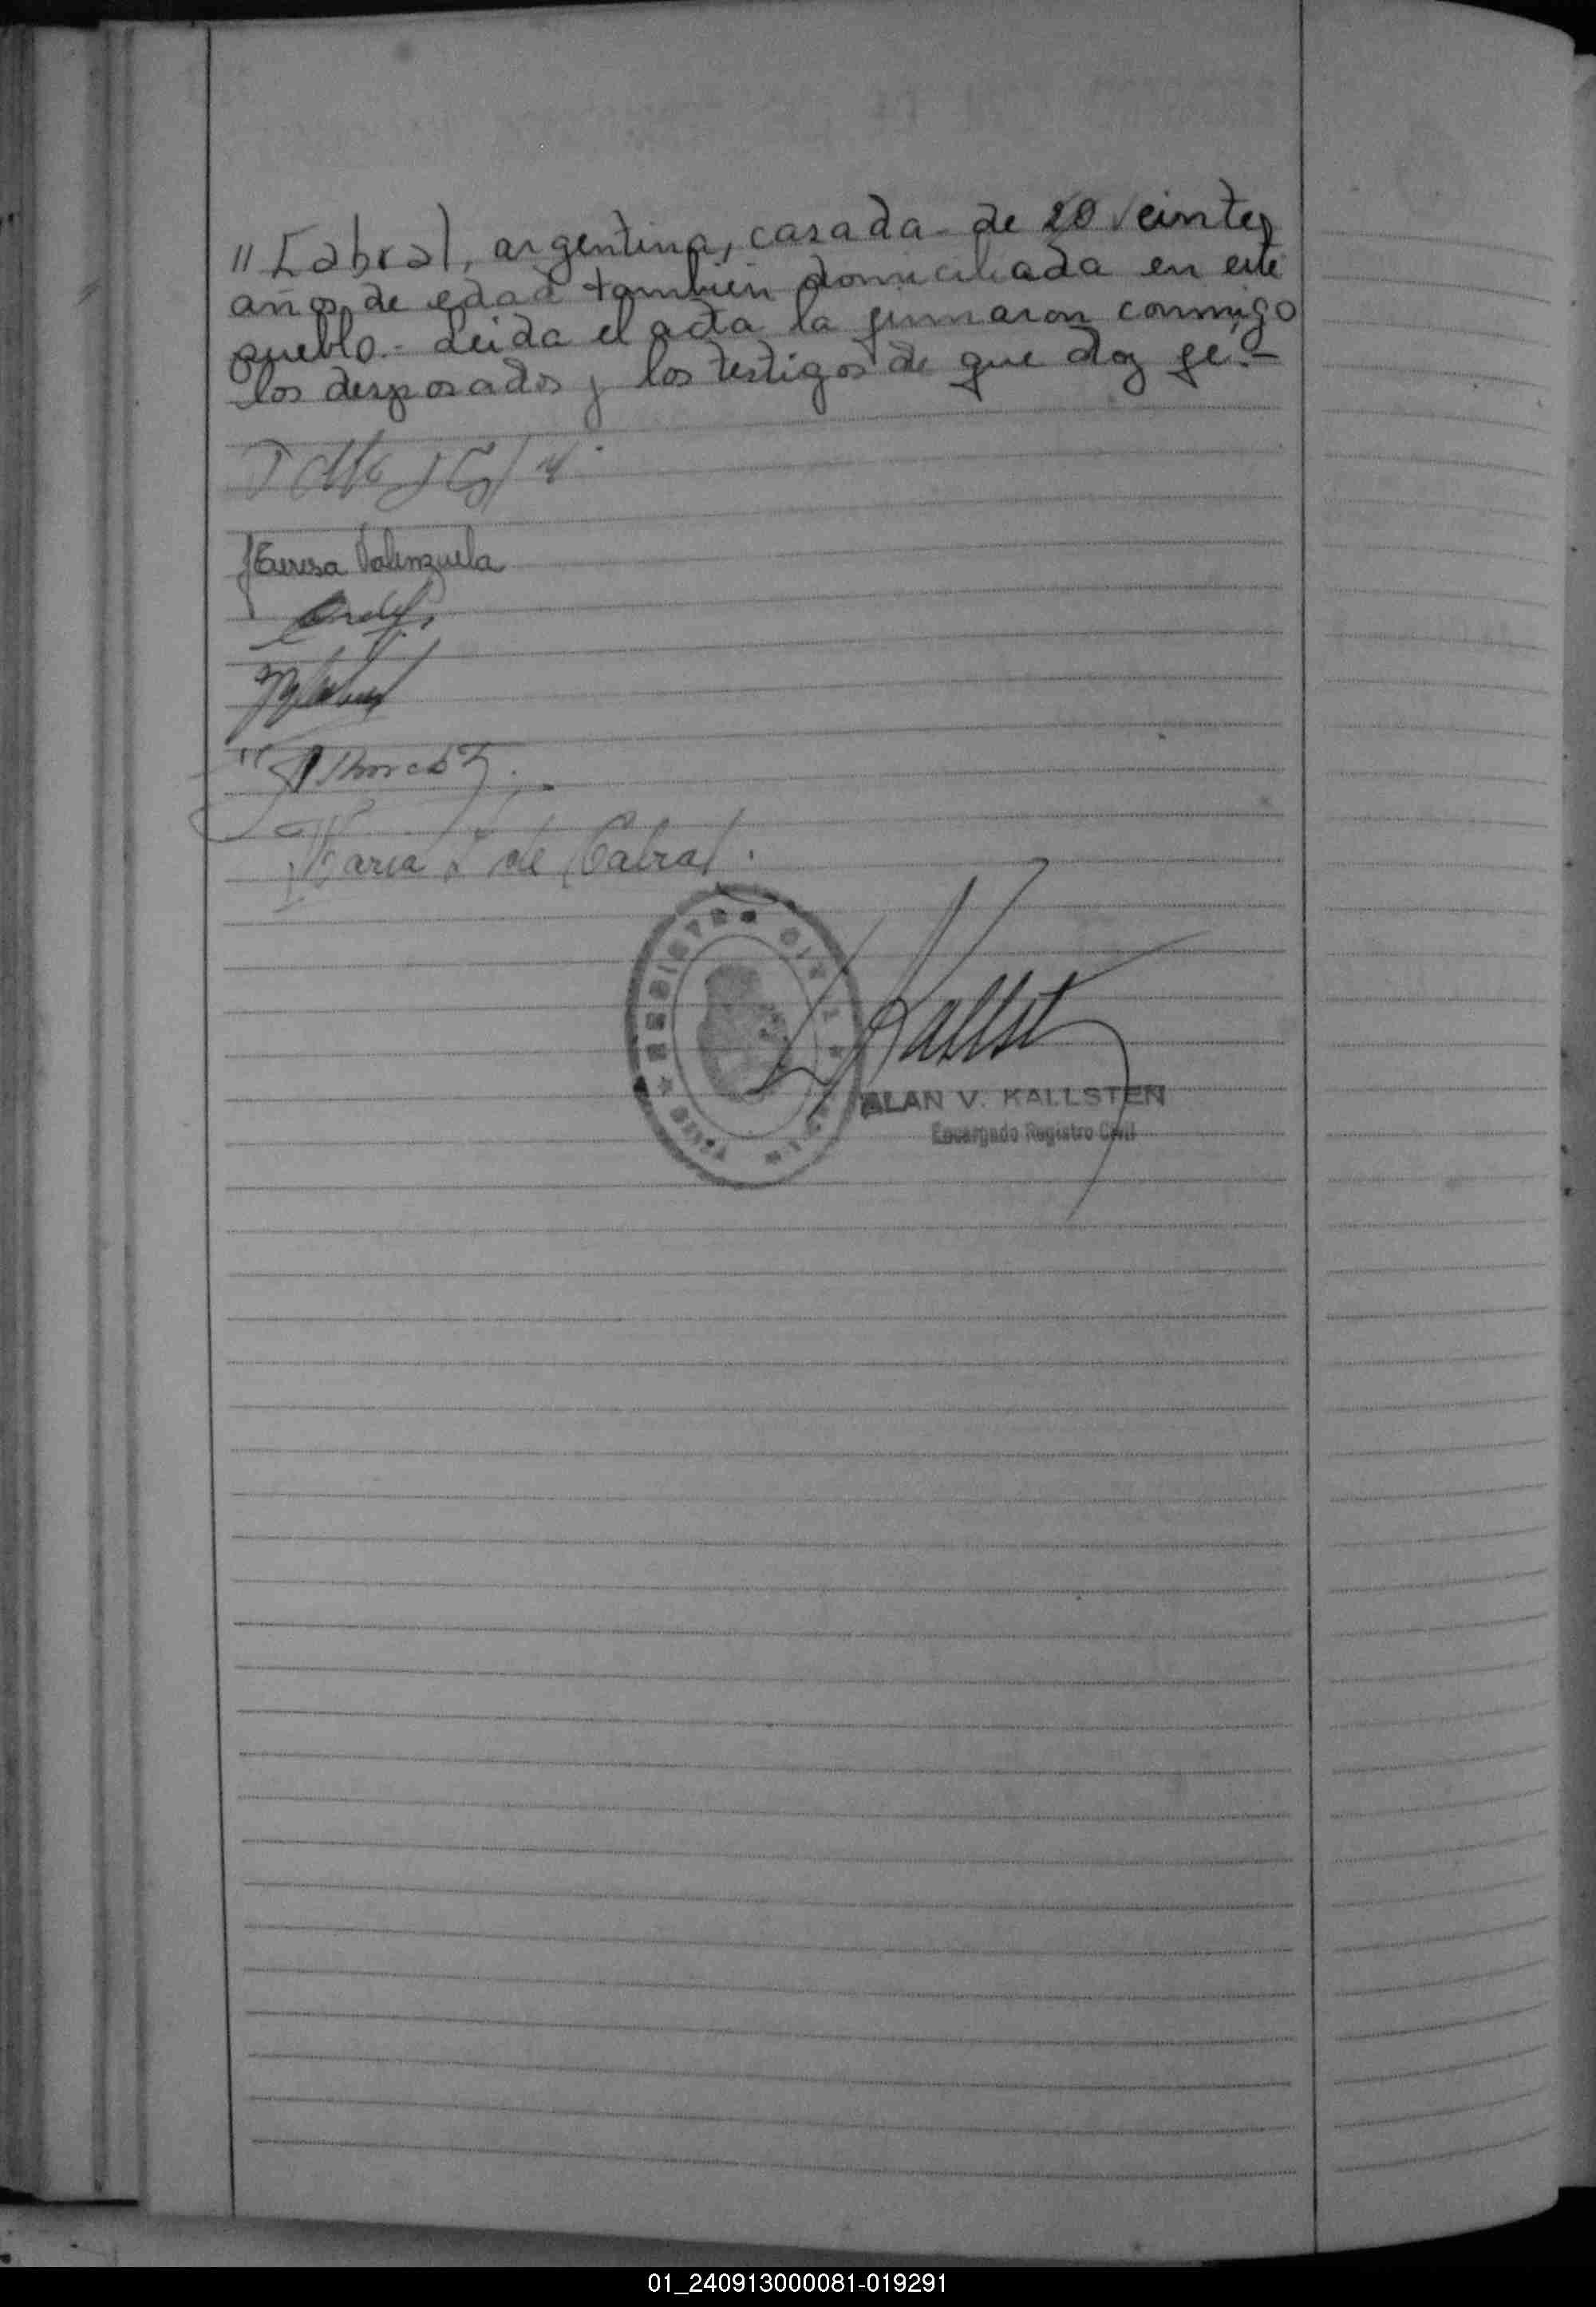 " Cabral, argentina, casada - de 20 veinte
años de edad tambien domiciliada en este
pueblo. - Leida el acta la firmaron conmigo
los desposados y los testigos de que doy fe. -
Teresa Valenzuela
Maria L de Cabral.
REGISTRO CIVIL
Kallst
ALAN V. KALLSTEN
Encargado Registro Civil
01_240913000081-019291